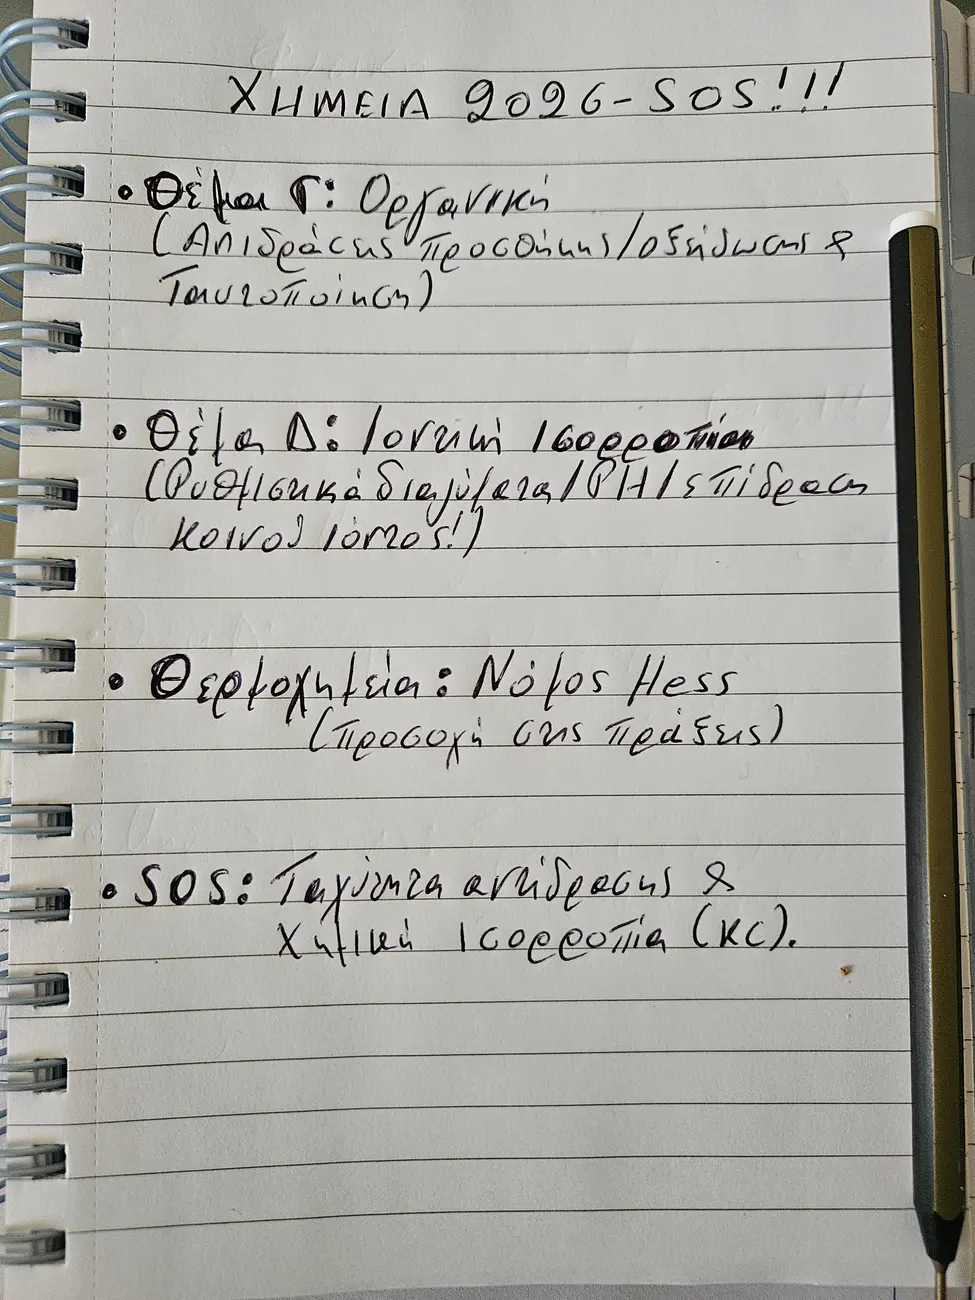 ΧΗΜΕΙΑ 2026-SOS!!!
• Θέμα Γ: Οργανική
(Αντιδράσεις προσθήκης/οξείδωσης &
Ταυτοποίηση)
• Θέμα Δ: Ιοντική Ισορροπία
(Ρυθμιστικά διαλύματα/PH/επίδραση
κοινού ιόντος!)
• Θερμοχημεία: Νόμος Hess
(προσοχή στις πράξεις)
• SOS: Ταχύτητα αντίδρασης &
Χημική Ισορροπία (KC).